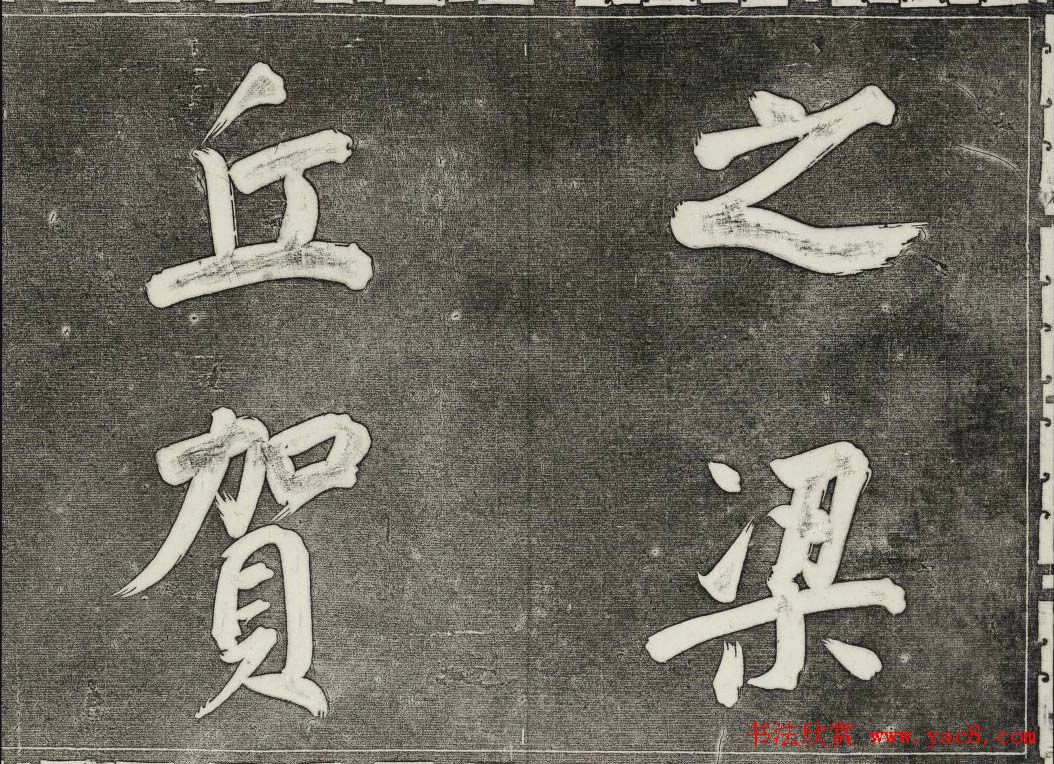 之梁
丘賀
书法欣赏 www.yac8.com